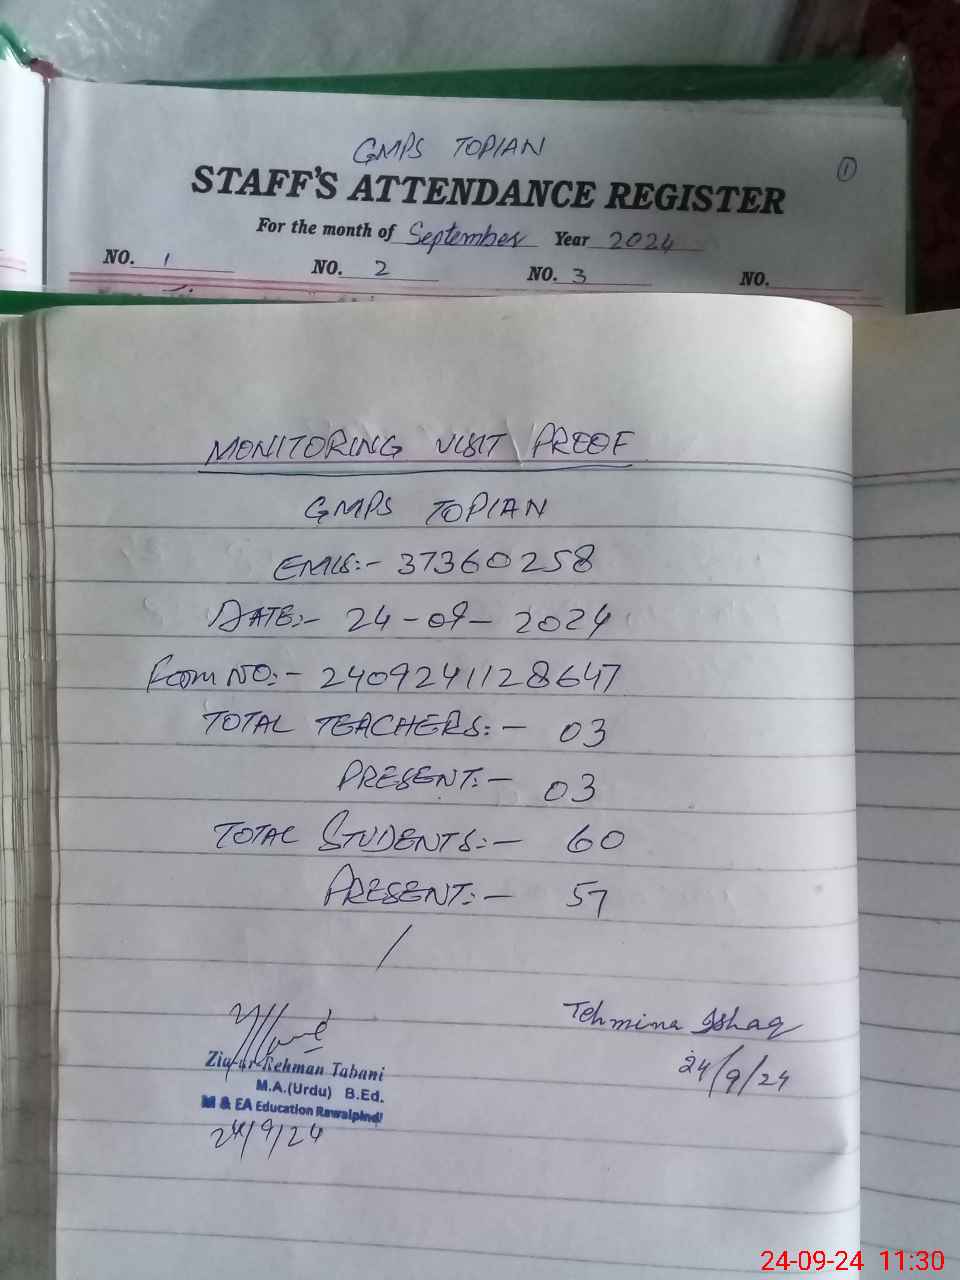 GMPS TOPIAN
1
STAFF'S ATTENDANCE REGISTER
For the month of September Year 2024
NO. 1 NO. 2 NO. 3 NO.
MONITORING VISIT PROOF
GMPS TOPIAN
EMIS:- 37360258
DATE:- 24-09-2024
Form NO:- 2409241128647
TOTAL TEACHERS:- 03
PRESENT:- 03
TOTAL STUDENTS:- 60
PRESENT:- 57
Tehmina Ishaq
24/9/24
Zia-ur-Rehman Tabani
M.A.(Urdu) B.Ed.
M & EA Education Rawalpindi
24/9/24
24-09-24 11:30